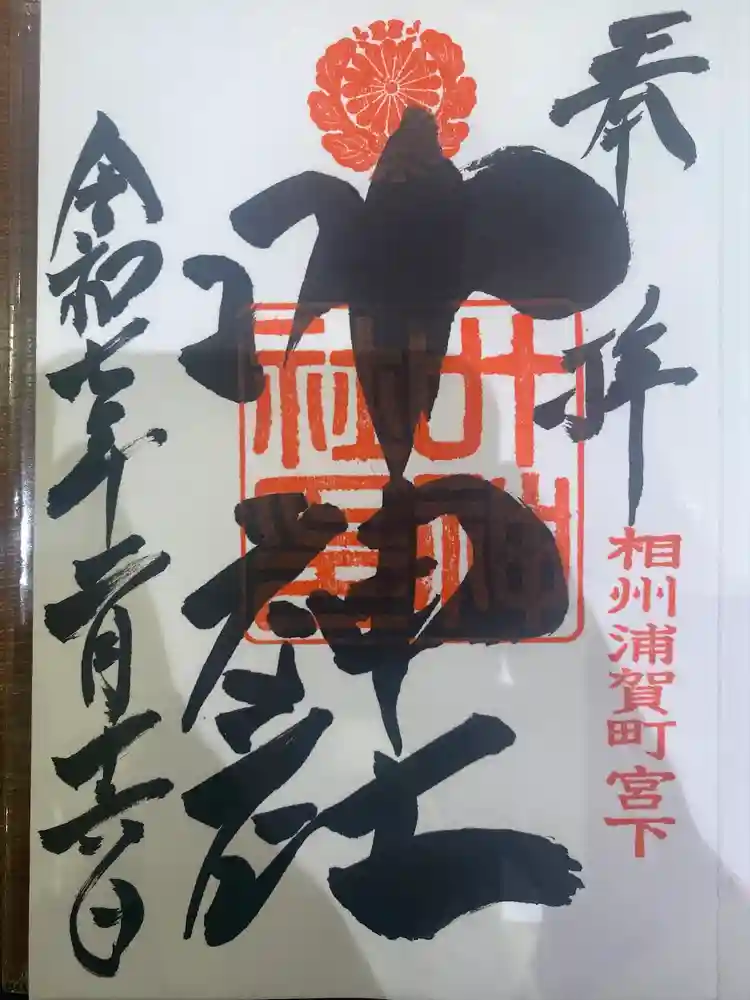 奉拝
相州浦賀町宮下
叶神社
叶神
社
令和七年二月十六日